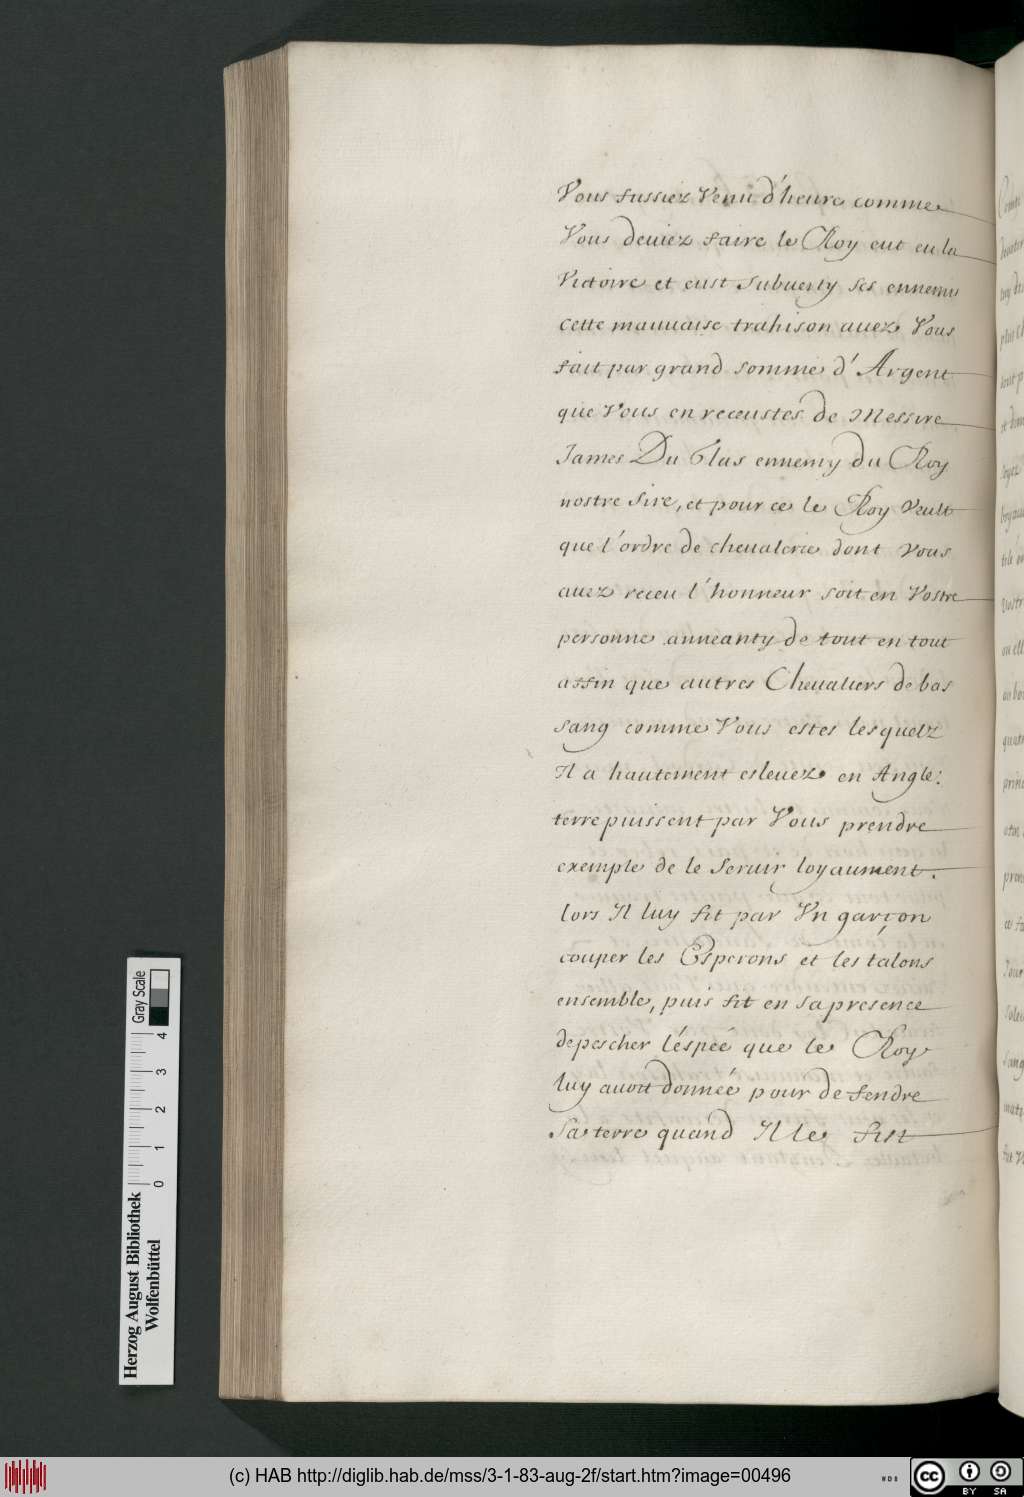 Vous fussiez Venu d'heure comme
Vous deuiez faire le Roy eut eu la
Victoire et eust subuerty ses ennemis
cette mauuaise trahison auez Vous
fait par grand somme d'Argent
que Vous en receustes de Messire
James Du Glas ennemy du Roy
nostre sire, et pour ce le Roy Veult
que l'ordre de cheualerie dont Vous
auez receu l'honneur soit en Vostre
personne anneanty de tout en tout
affin que autres Cheualiers de bas
sang comme Vous estes lesquelz
Il a hautement esleuez en Angle:
terre puissent par Vous prendre
exemple de le seruir loyaument.
lors Il luy fit par Vn garçon
couper les Esperons et les talons
ensemble, puis fit en sa presence
depescher l'éspée que le Roy
luy auoit donnée pour defendre
sa terre quand Il le fist
Herzog August Bibliothek
Wolfenbüttel
0 1 2 3 4
Gray Scale
(c) HAB http://diglib.hab.de/mss/3-1-83-aug-2f/start.htm?image=00496
WDB
cc BY SA